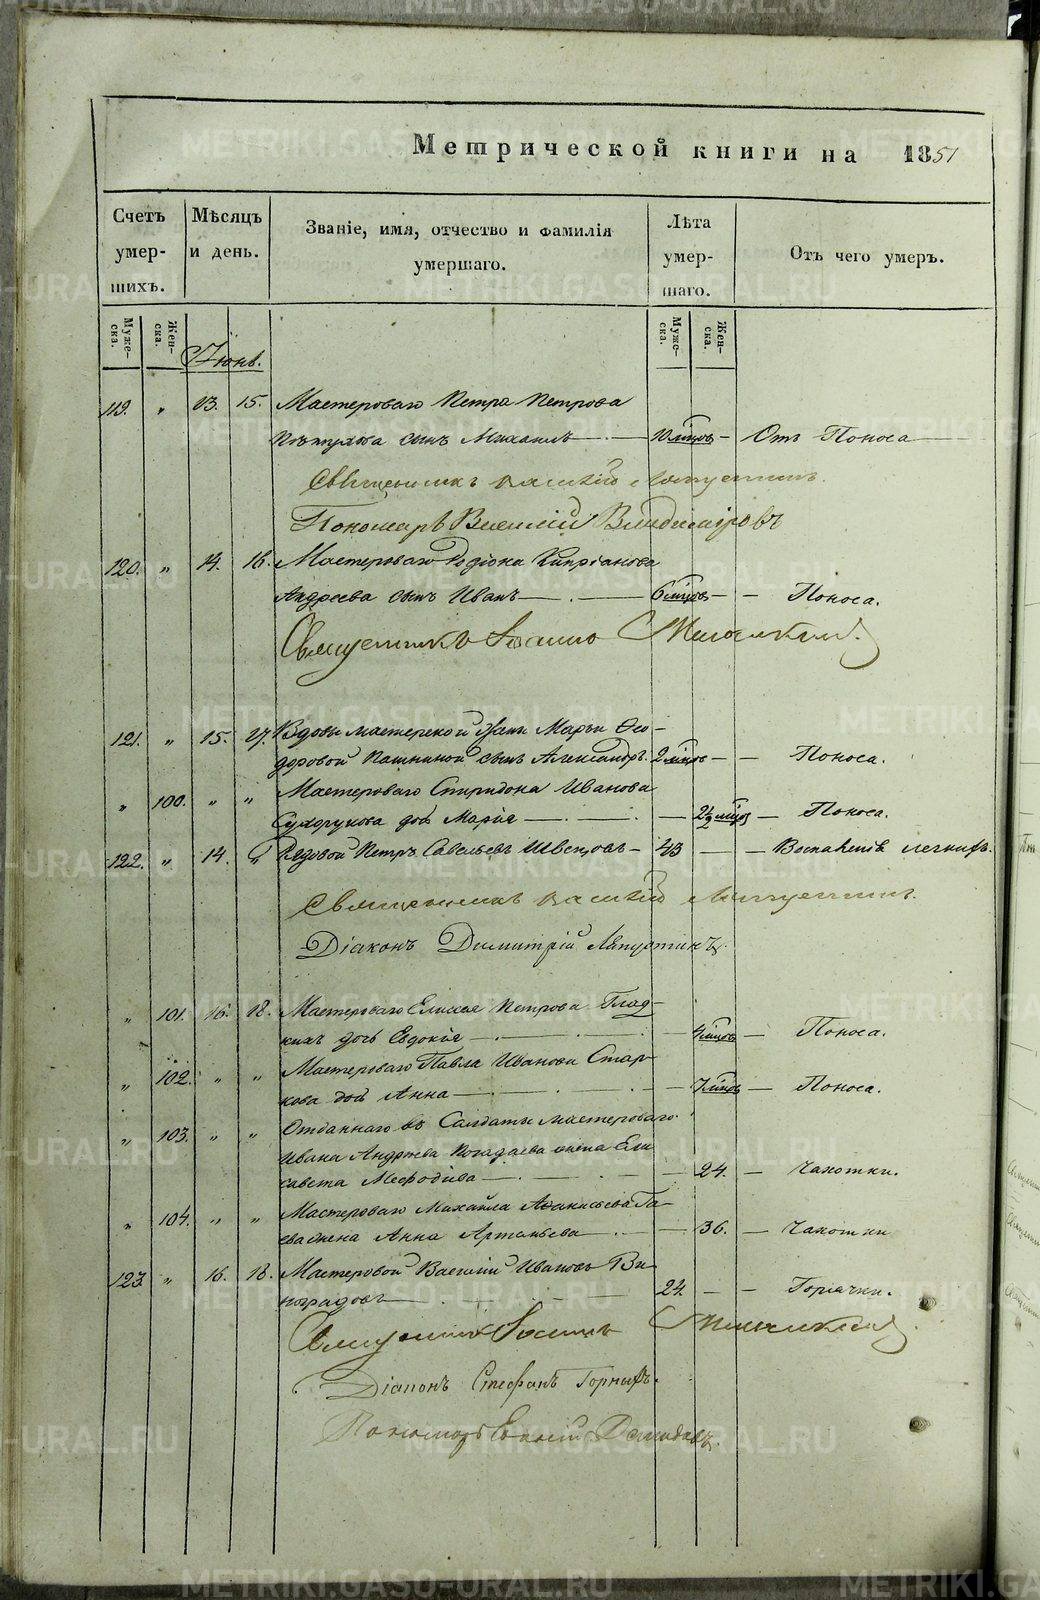 Метрической книги на 1851
Счетъ умер- шихъ.
Мѣсяцъ и день.
Званіе, имя, отчество и фамилія умершаго.
Лѣта умер- шаго.
Отъ чего умеръ.
Муже- ска.
Жен- ска.
Муже- ска.
Жен- ска.
Іюнь.
119. „ 13. 15. Мастероваго Петра Петрова
сынъ Михаилъ — 10 мѣцовъ — Отъ Поноса
Священникъ Василій
Пономарь Василій Владиміровъ
120. „ 14. 16. Мастероваго Родіона Кипріанова
Андреева сынъ Иванъ — 6 мѣцовъ — Поноса.
Священникъ Іоаннъ
121. „ 15. 17. Вдовы мастерской жены Марьи Ѳео-
доровой сынъ Александръ. 2 мѣцовъ — Поноса.
„ 100. „ „ Мастероваго Спиридона Иванова
Сухорукова дочь Марія — 2½ мѣцов — Поноса.
122. „ 14. „ Рядовой Петръ Савельевъ Швецовъ — 43 — Воспаленія легкихъ.
Священникъ Василій
Діаконъ Димитрій Ляпустинъ.
„ 101. 16. 18. Мастероваго Елисея Петрова Глад-
кихъ дочь Евдокія — 4 мѣцовъ — Поноса.
„ 102. „ „ Мастероваго Павла Иванова Стар-
кова дочь Анна — 7 мѣцовъ — Поноса.
„ 103. „ „ Отданнаго въ Солдаты мастероваго
Ивана Андреева жена Ели-
савета Меѳодіева — 24. — Чахотки.
„ 104. „ „ Мастероваго Михайла Га-
ева жена Анна Артемьева — 36. — Чахотки
123 „ 16. 18. Мастеровой Василій Ивановъ Ви-
ноградовъ — 24. — Горячки.
Священникъ Іоаннъ
Діаконъ Стефанъ Горныхъ.
Пономарь Демидовъ.
METRIKI.GASO-URAL.RU